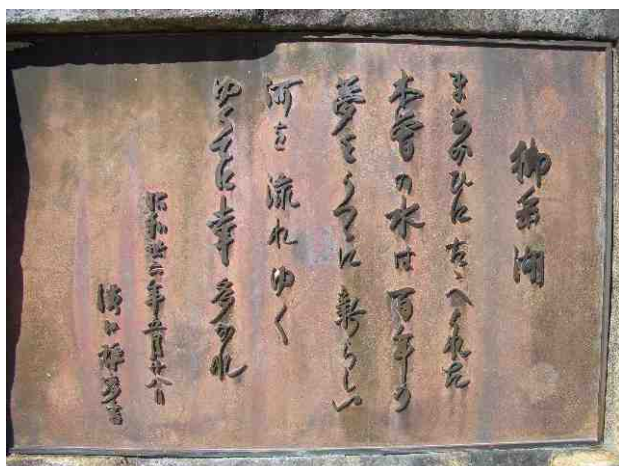 御岳湖
まなかひにたゝへられた
木曽の水は百年の
夢をうつゝに新らしい
河を流れゆく
ゆくてに幸多かれ
昭和卅六年五月廿八日
濱口雄彦書